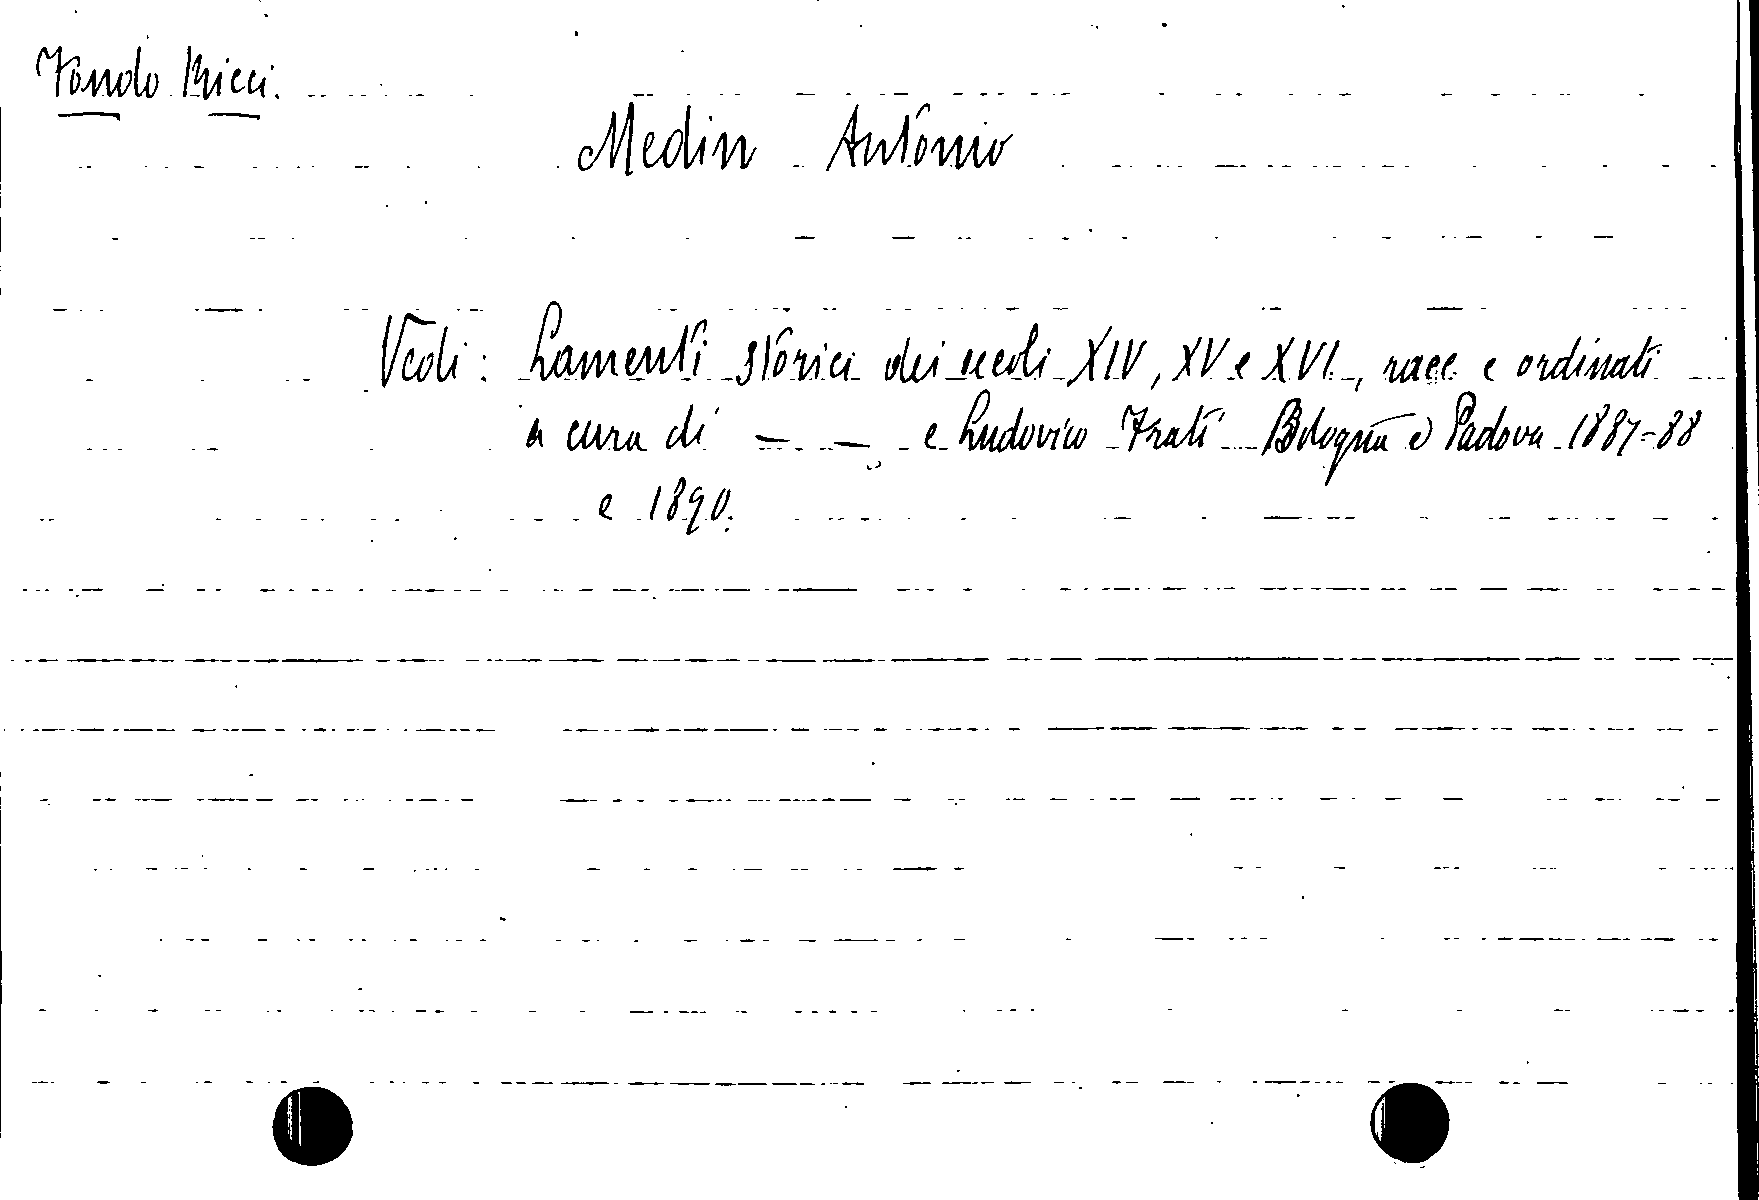 Fondo Ricci.
Medin Antonio
Vedi: Lamenti storici dei secoli XIV, XV e XVI, racc e ordinati
a cura di — — e Ludovico Frati Bologna e Padova 1887-88
e 1890.